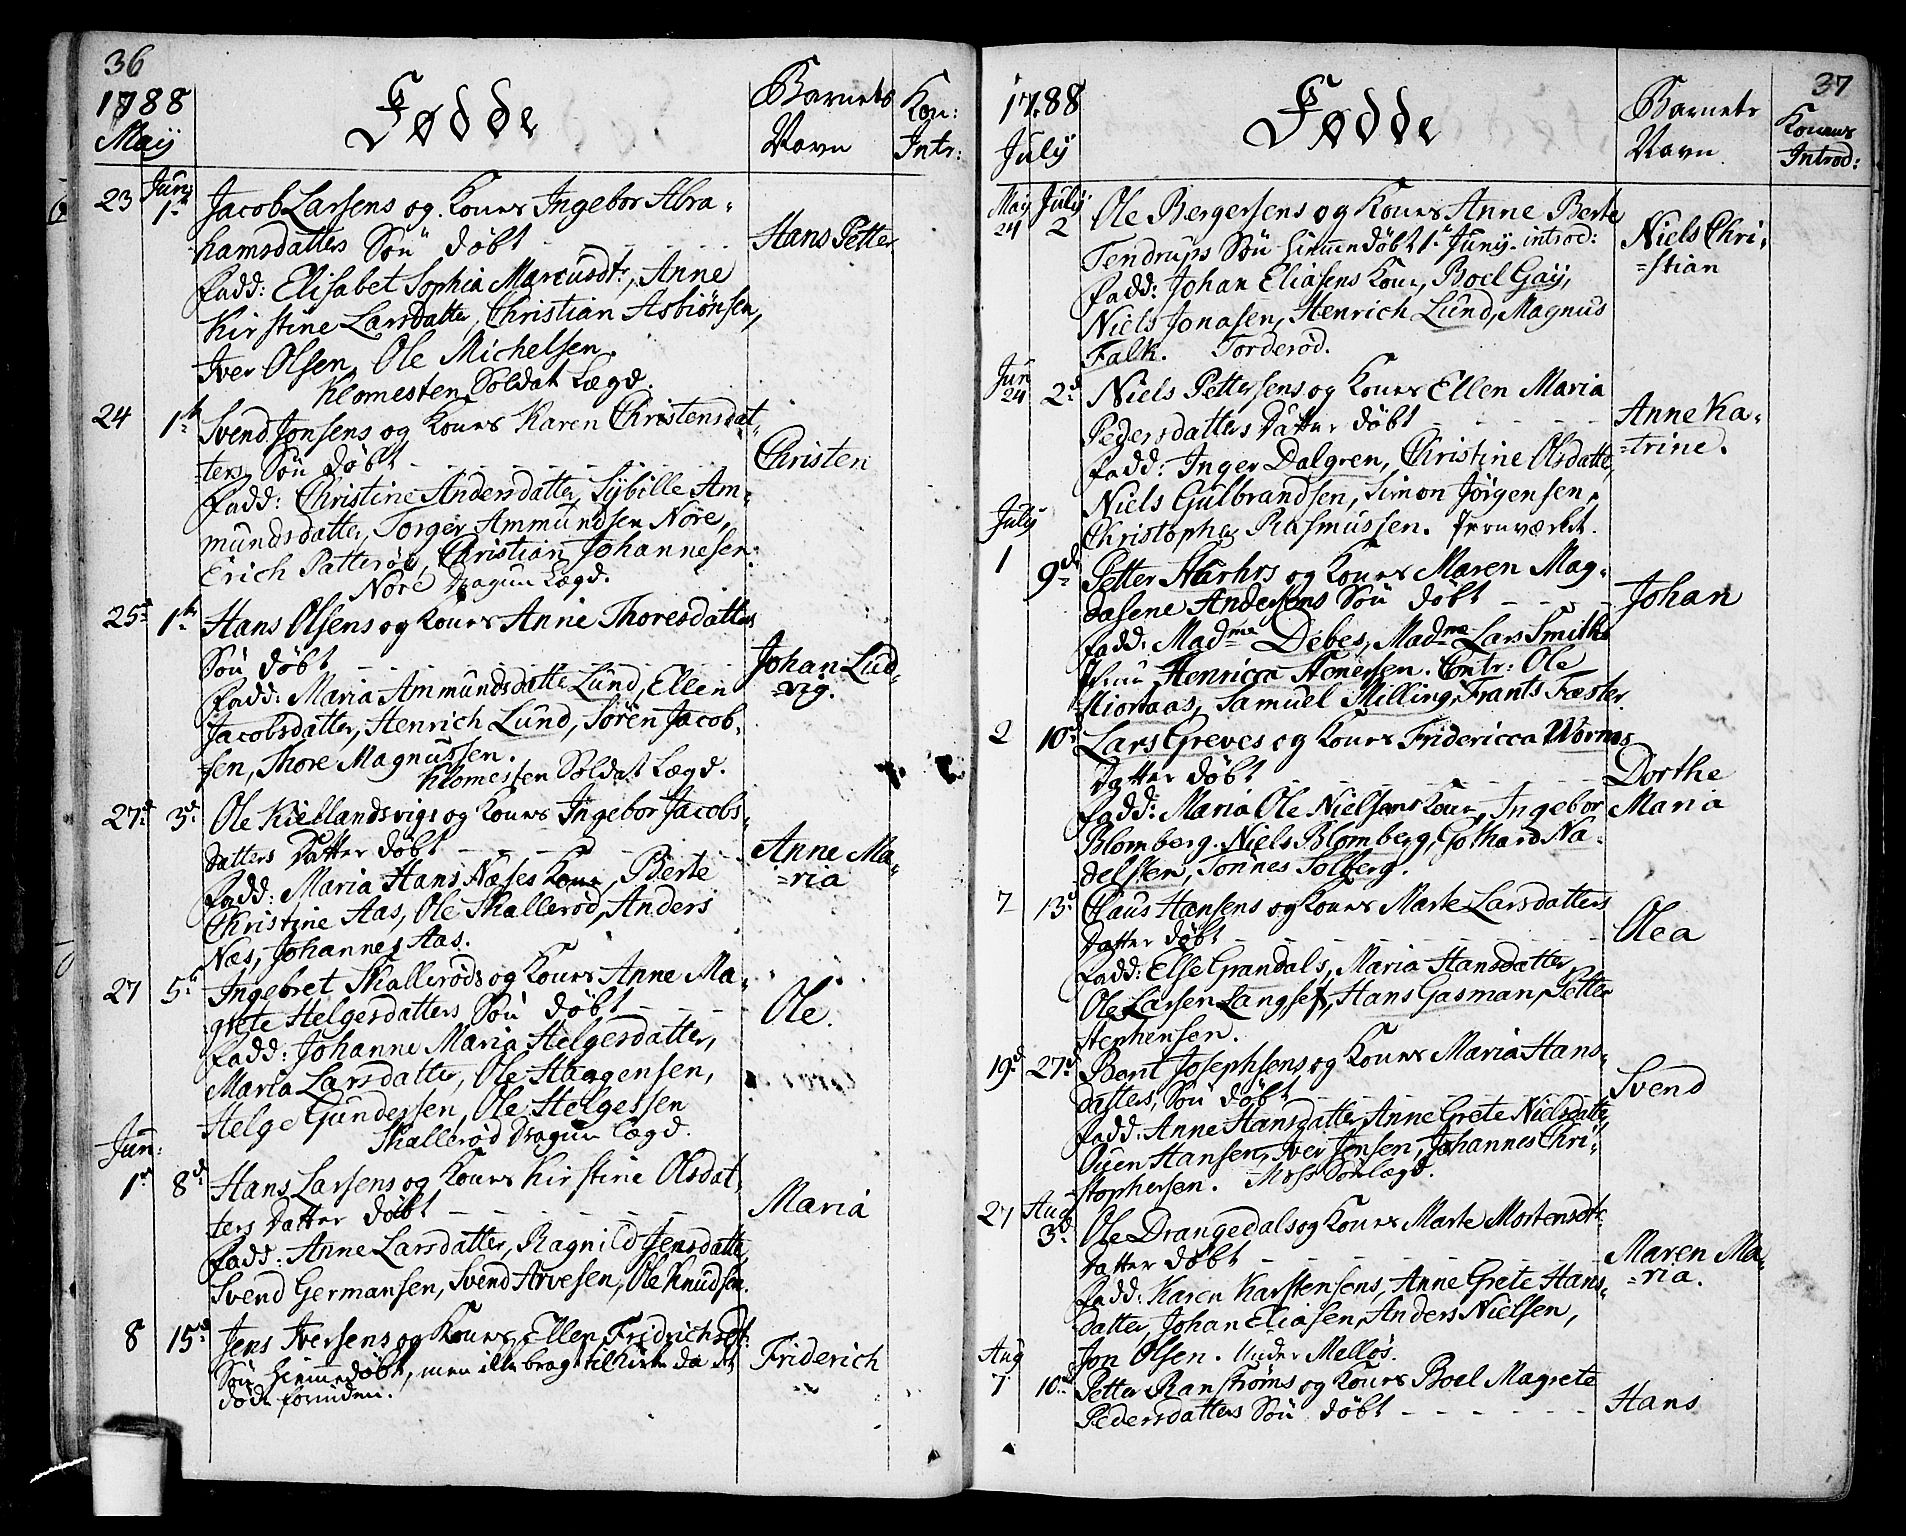 36
1788
May
Fødde
Barnets
Navn
Kon:
Intr:
23 Junj 1te Jacob Larsens og Kones Ingebor Abra-
hamsdatters Søn døbt
Hans Petter
Fadd: Elisabet Sophia Marcusdtr, Anne
Kirstine Larsdatter, Christian Asbiønsen,
Iver Olsen, Ole Michelsen.
Klomesten Soldat Lægd.
24 1te Svend Jonsens og Kones Karen Christensdat-
ters Søn døbt
Christen
Fadd: Christine Andersdatter, Sybille Am-
mundsdatter, Torger Ammundsen Nore,
Erich Patterød, Christian Johannesen.
Nore Dragun Lægd.
25d 1te Hans Olsens og Kones Anne Thoresdatters
Søn døbt
Johan Lud-
=vig.
Fadd: Maria Ammundsdatter Lund, Ellen
Jacobsdatter, Henrich Lund, Søren Jacob-
sen, Thore Magnussen.
Klomesten Soldat Lægd.
27d 3d Ole Kiellandsvigs og Kones Ingebor Jacobs-
datters Datter døbt
Anne Ma-
=ria
Fadd: Maria Hans Næses Kone, Berte
Christine Aas, Ole Skallerød, Anders
Næs, Johannes Aas.
27 5te Ingebret Skallerøds og Kones Anne Ma-
grete Helgesdatters Søn døbt
Ole.
Fadd: Johanne Maria Helgesdatter,
Maria Larsdatter, Ole Haagensen,
Helge Gundersen, Ole Helgessen
Skallerød Dragun Lægd.
Jun:
1te 8d Hans Larsens og Kones Kirstine Olsdat-
ters Datter døbt
Maria
Fadd: Anne Larsdatter, Ragnild Jensdatter
Svend Germansen, Svend Arvesen, Ole Knudsen.
8 15d Jens Iversens og Kones Ellen Fridrichsdt:
Søn hiemmedøbt, men ille bragt til Kirke da det
døde forinden.
Friderich
37
1788
July
Fødde
Barnets
Navn
Konens
Introd:
May 24 July 2 Ole Bergersens og Kones Anne Berte
Tendrups Søn hiemmedøbt 1te Juny. introd:
Niels Chri-
=stian
Fadd: Johan Eliasens Kone, Boel Gay,
Niels Jonasen, Henrich Lund, Magnus
Falk. Torderød.
Jun 24 2d Niels Pettersens og Kones Ellen Maria
Pedersdatters Datter døbt
Anne Ka-
=trine.
Fadd: Inger Dalgren, Christine Olsdatter,
Niels Gulbrandsen, Simon Jørgensen,
July
Christopher Rasmussen. Jernværket.
1 9de Petter Hurhrs og Kones Maren Mag-
dalene Andersens Søn døbt
Johan
Fadd: Madme Debes, Madme Lars Smiths
Henricca Semersen. Contr: Ole
Miortaas, Samuel Milling, Frants Fæster.
2 10d Lars Greves og Kones Fridericca Wormes
Datter døbt
Dorthe
Maria
Fadd: Maria Ole Nielsens Kone, Ingebor
Blomberg. Niels Blomberg, Gothard Na-
delsten, Tønnes Solberg.
7 13d Claus Hansens og Kones Marte Larsdatters
Datter døbt
Olea
Fadd: Else Grandals, Maria Hansdatter,
Ole Larsen Langset, Hans Gasman, Petter
Stephensen.
19d 27d Bent Josephsens og Kones Maria Hans-
datters, Søn døbt
Svend
Fadd: Anne Hansdatter, Anne Grete Nielsdatter
Ouen Hansen, Iver Jensen, Johannes Chri-
stophersen. Moss Søelægd.
27 Aug 3d Ole Drangedals og Kones Marte Mortensdtr:
Datter døbt
Maren Ma-
=ria.
Fadd: Karen Karstensens, Anne Grete Hans-
datter, Johan Eliasen, Anders Nielsen,
Jon Olsen. Under Melløs.
Aug
7 10d Petter Ranstrøms og Kones Boel Magrete
Pedersdatters Søn døbt
Hans